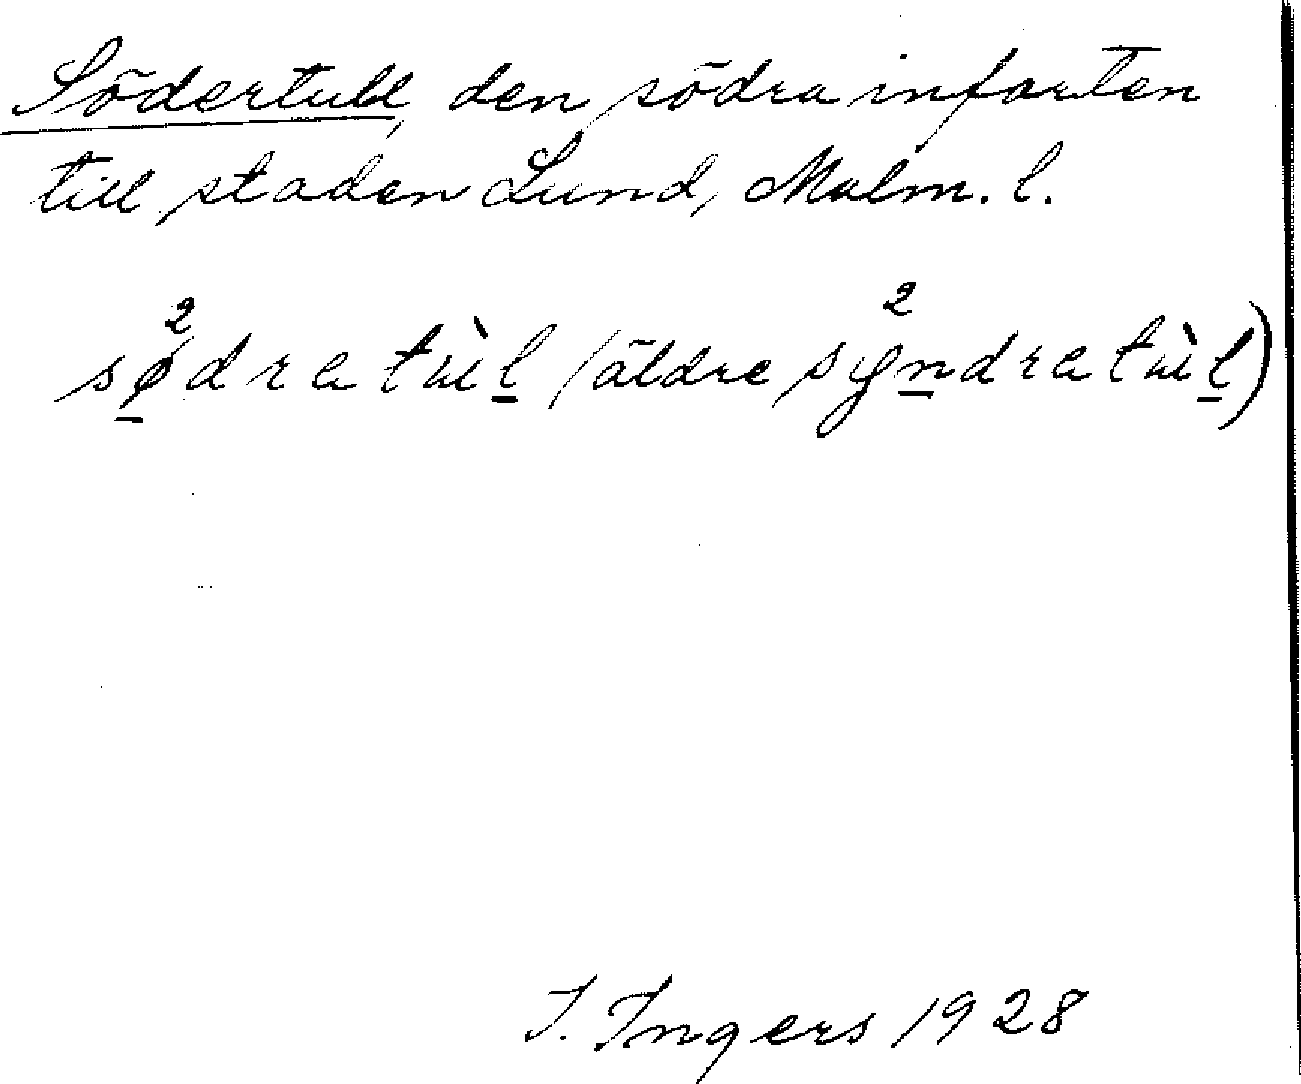 Södertull, den södra infarten
till staden Lund, Malm. l.
sø̲²dratùl̲ (äldre sy²n̲dratùl̲)
I. Ingers 1928